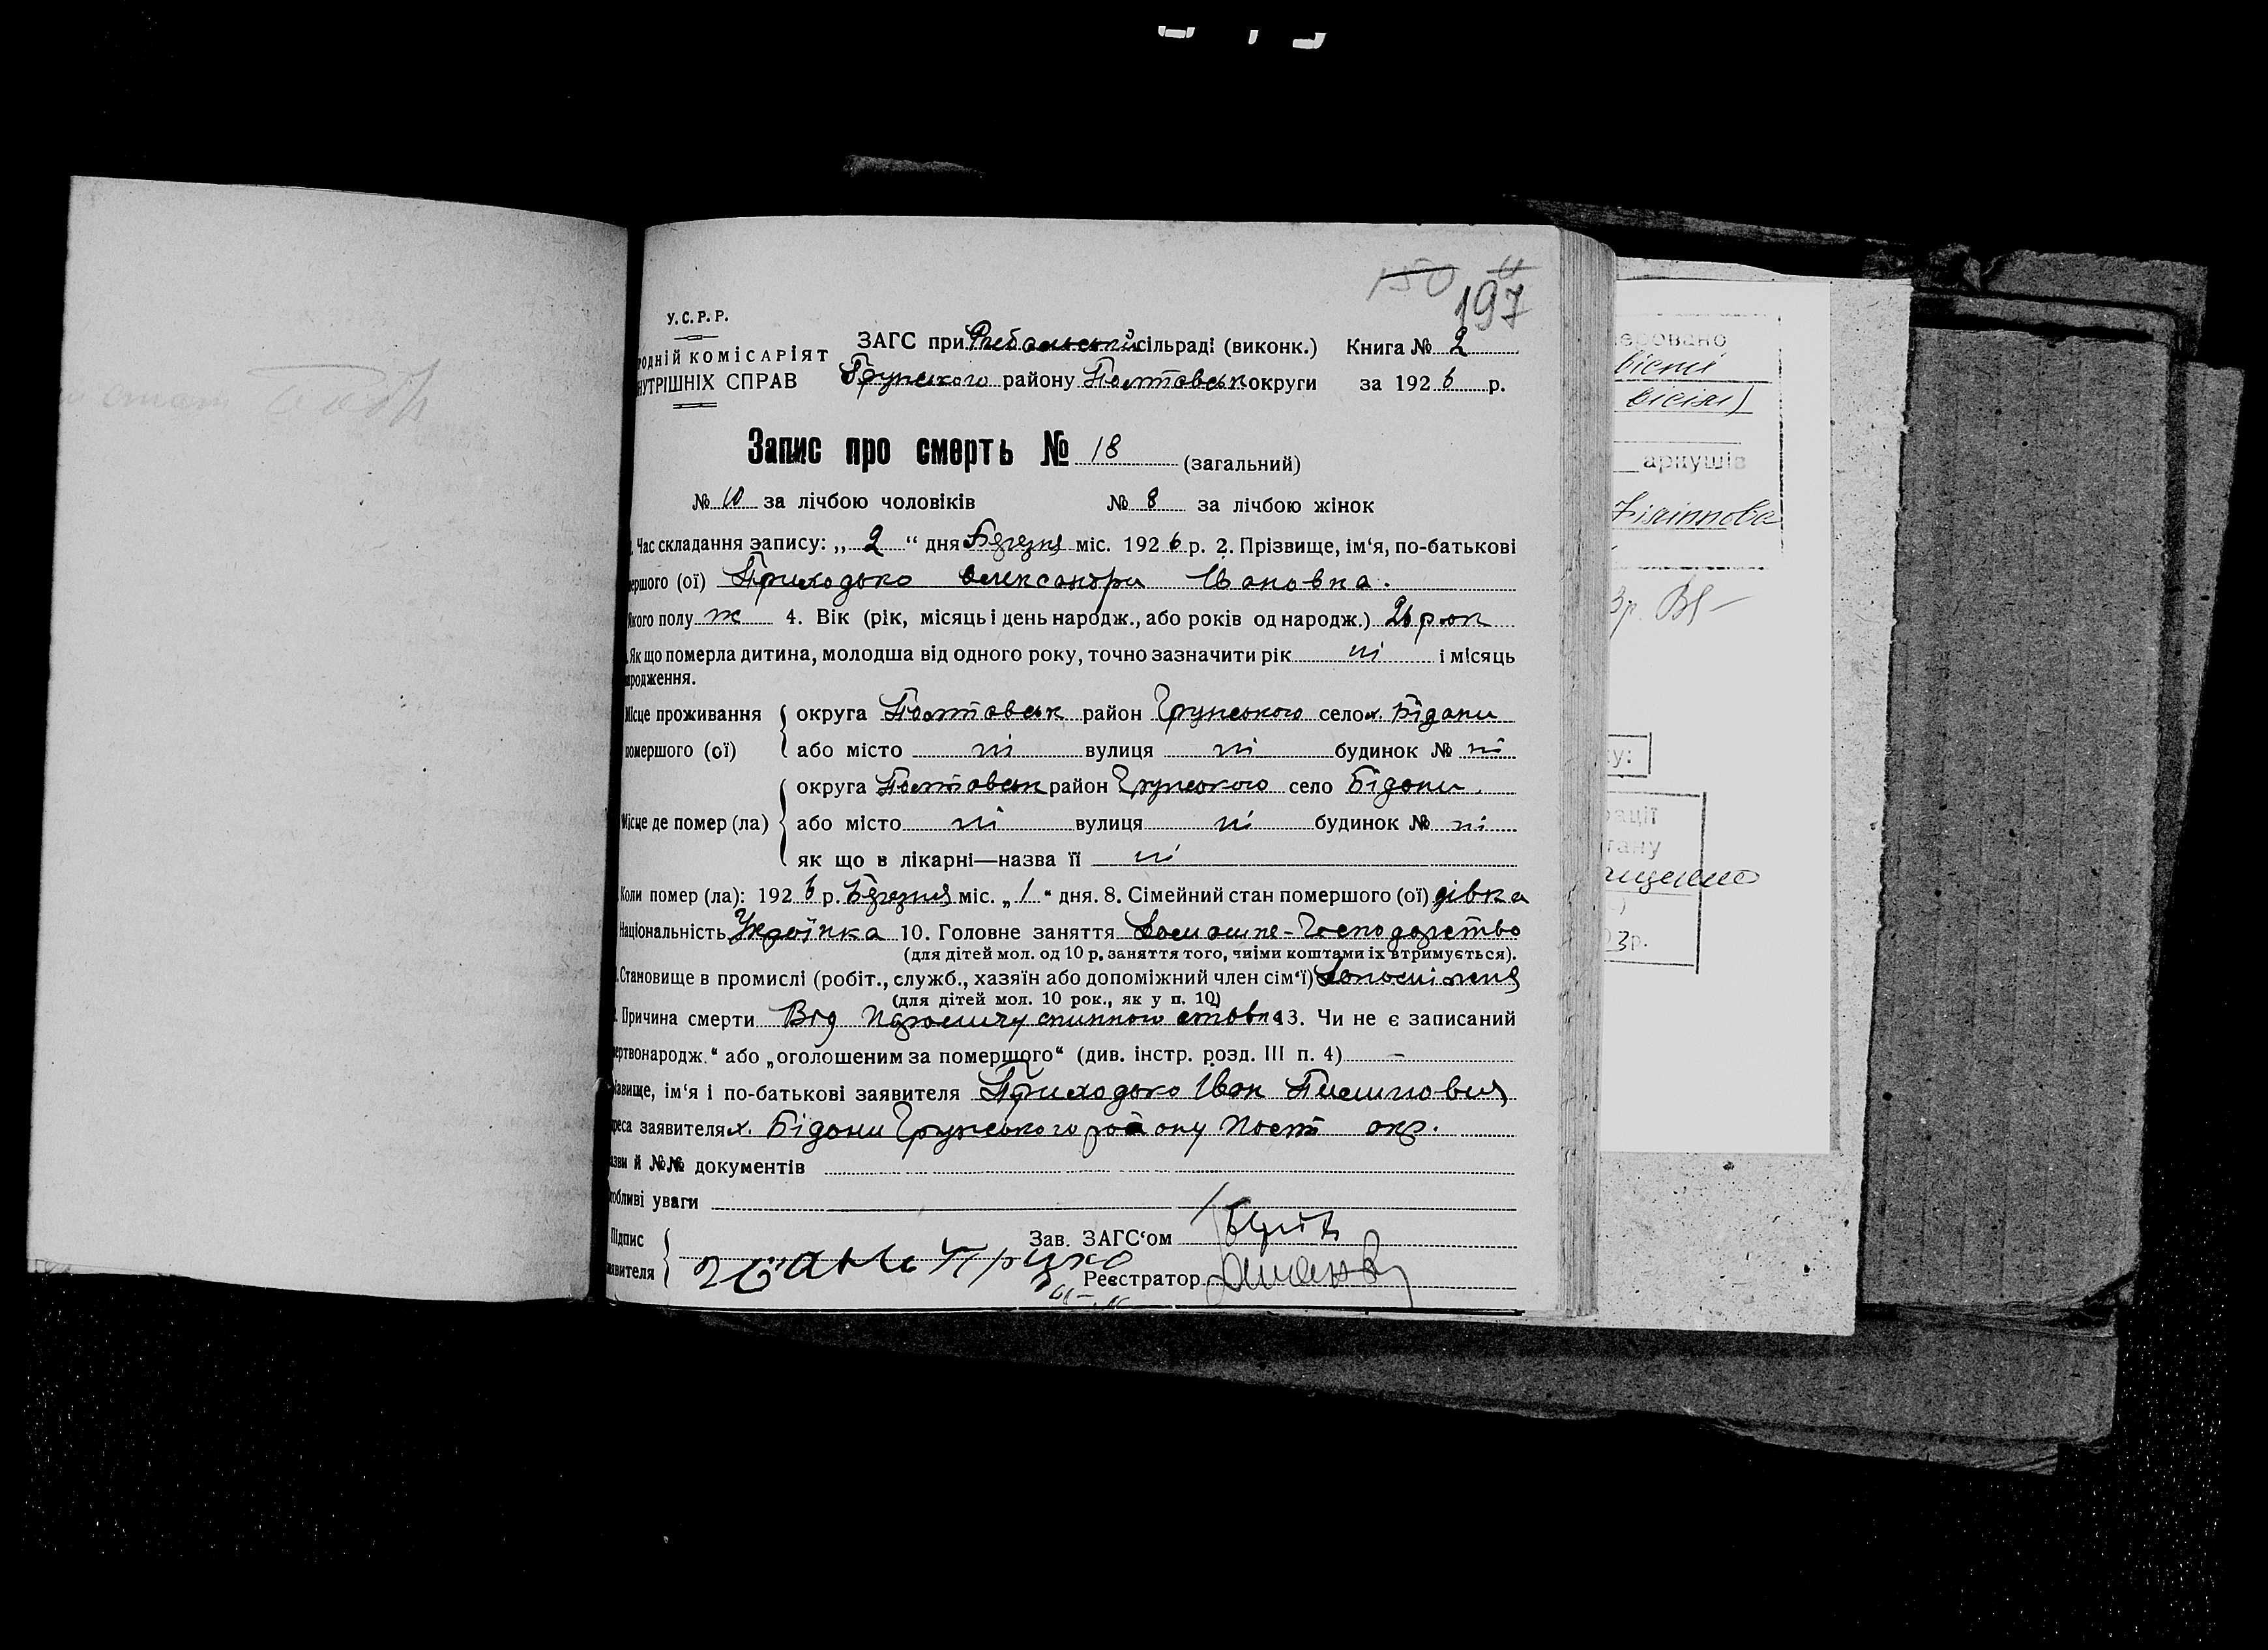 150
197
У.С.Р.Р.
ЗАГС при сільраді (виконк.) Книга № 2
родній комісаріят
нутрішніх справ
Грунського району Полтавськ округи за 1926 р.
Запис про смерть № 18 (загальний)
№ 10 за лічбою чоловіків № 8 за лічбою жінок
Час складання запису: „ 2 “ дня Березня міс. 1926 р. 2. Прізвище, ім‘я, по-батькові
мершого (ої) Приходько Олександра Івановна.
Якого полу ж 4. Вік (рік, місяць і день народж., або років од народж.) 26 рок
Як що померла дитина, молодша від одного року, точно зазначити рік ні і місяць
ародження.
Місце проживання округа Полтавськ район Грунського село х. Бідани
помершого (ої) або місто ні вулиця ні будинок № ні
округа Полтавськ район Грунського село Бідани.
Місце де помер (ла) або місто ні вулиця ні будинок № ні
як що в лікарні—назва її ні
Коли помер (ла): 1926 р. Березня міс. „ 1 “ дня. 8. Сімейний стан помершого (ої) дівка
Національність Українка 10. Головне заняття Домашне-Господарство
(для дітей мол. од 10 р. заняття того, чиїми коштами їх втримується).
Становище в промислі (робіт., служб., хазяїн або допоміжний член сім‘ї)
(для дітей мол. 10 рок., як у п. 10)
Причина смерти Від спинного 13. Чи не є записаний
ертвонародж.“ або „оголошеним за помершого“ (див. інстр. розд. III п. 4) –
ізвище, ім‘я і по-батькові заявителя Приходько Іван
реса заявителя х. Бідани Грунського району Полт окр.
азви й №№ документів
собливі уваги
Підпис
Зав. ЗАГС‘ом
аявителя
Реєстратор
еровано
аркушів
Філіппова
3р.
у:
рації
гану
23р.